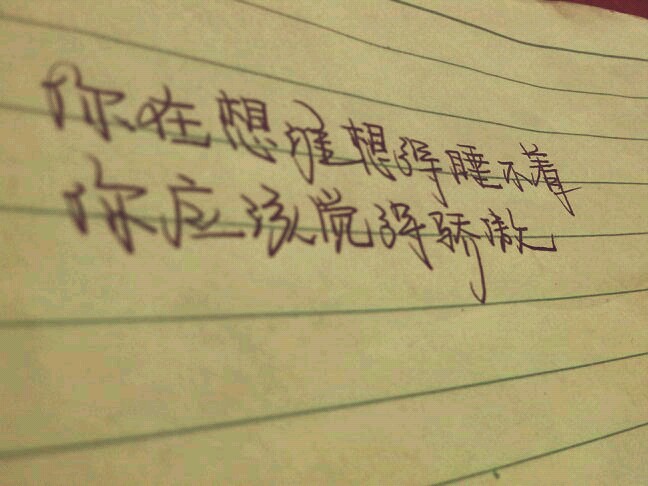 你在想谁想得睡不着
你应该觉得骄傲